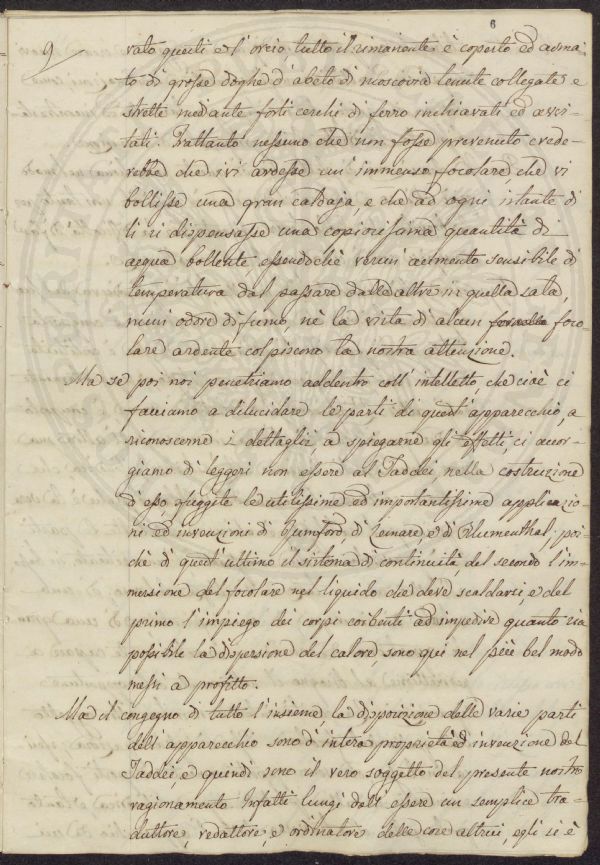 6
9
vato questi e l'orcio tutto il rimanente è coperto ed arma-
to di grosse doghe d'abeto di moscovia tenute collegate e
strette mediante forti cerchi di ferro inchiavati ed avvi-
tati. Frattanto nessuno che non fosse prevenuto crede-
rebbe che ivi ardesse un'immenso focolare che vi
bollisse una gran caldaja, e che ad ogni istante di
lì si dispensasse una copiosissima quantità di
acqua bollente essendochè verun'aumento sensibile di
temperatura dal passare dalle altre in quella sala,
niun odore di fumo, nè la vista di alcun foco-
lare ardente colpiscono la nostra attenzione.
Ma se poi noi penetriamo addentro coll'intelletto, che cioè ci
facciamo a dilucidare le parti di quest'apparecchio, a
riconoscerne i dettaglj, a spiegarne gli effetti, ci accor-
giamo di leggeri non essere al Taddei, nella costruzione
d'esso, fuggite le utilissime ed importantissime applicazio-
ni ed invenzioni di Rumford, di Lemare e di Blumenthal: poi-
chè di quest'ultimo il sistema di continuità, del secondo l'im-
mersione del focolare nel liquido che deve scaldarsi, e del
primo l'impiego dei corpi coibenti ad impedire quanto sia
possibile la dispersione del calore, sono qui nel più bel modo
messi a profitto.
Ma il congegno di tutto l'insieme, la disposizione delle varie parti
dell'apparecchio sono d'intera proprietà ed invenzione del
Taddei, e quindi sono il vero soggetto del presente nostro
ragionamento. Infatti lungi dell'essere un semplice tra-
duttore, redattore, e ordinatore delle cose altrui, egli si è